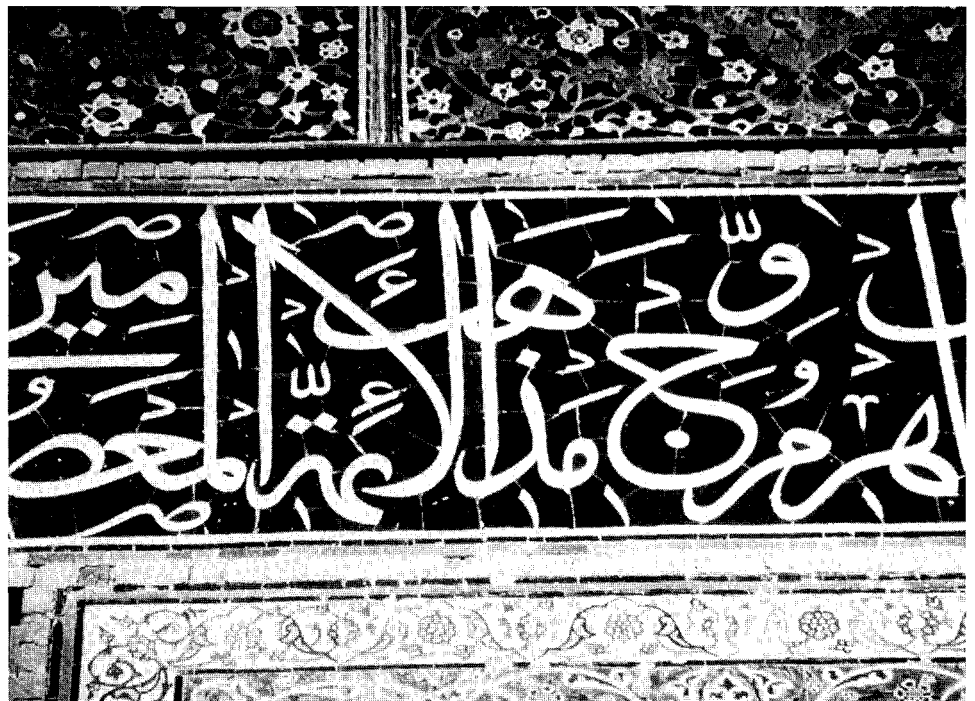 مروّج مذهب الائمّة المعصومين